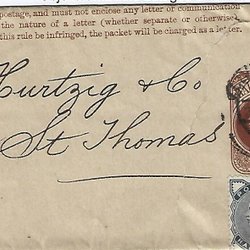 postage, and must not enclose any letter or communication
the nature of a letter (whether separate or otherwise).
this rule be infringed, the packet will be charged as a letter.
Hurtzig & Co
St Thomas